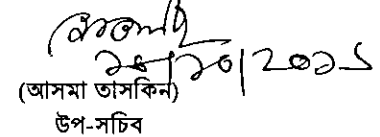 ২০/১০/২০১১
(আসমা তাসকিন)
উপ-সচিব